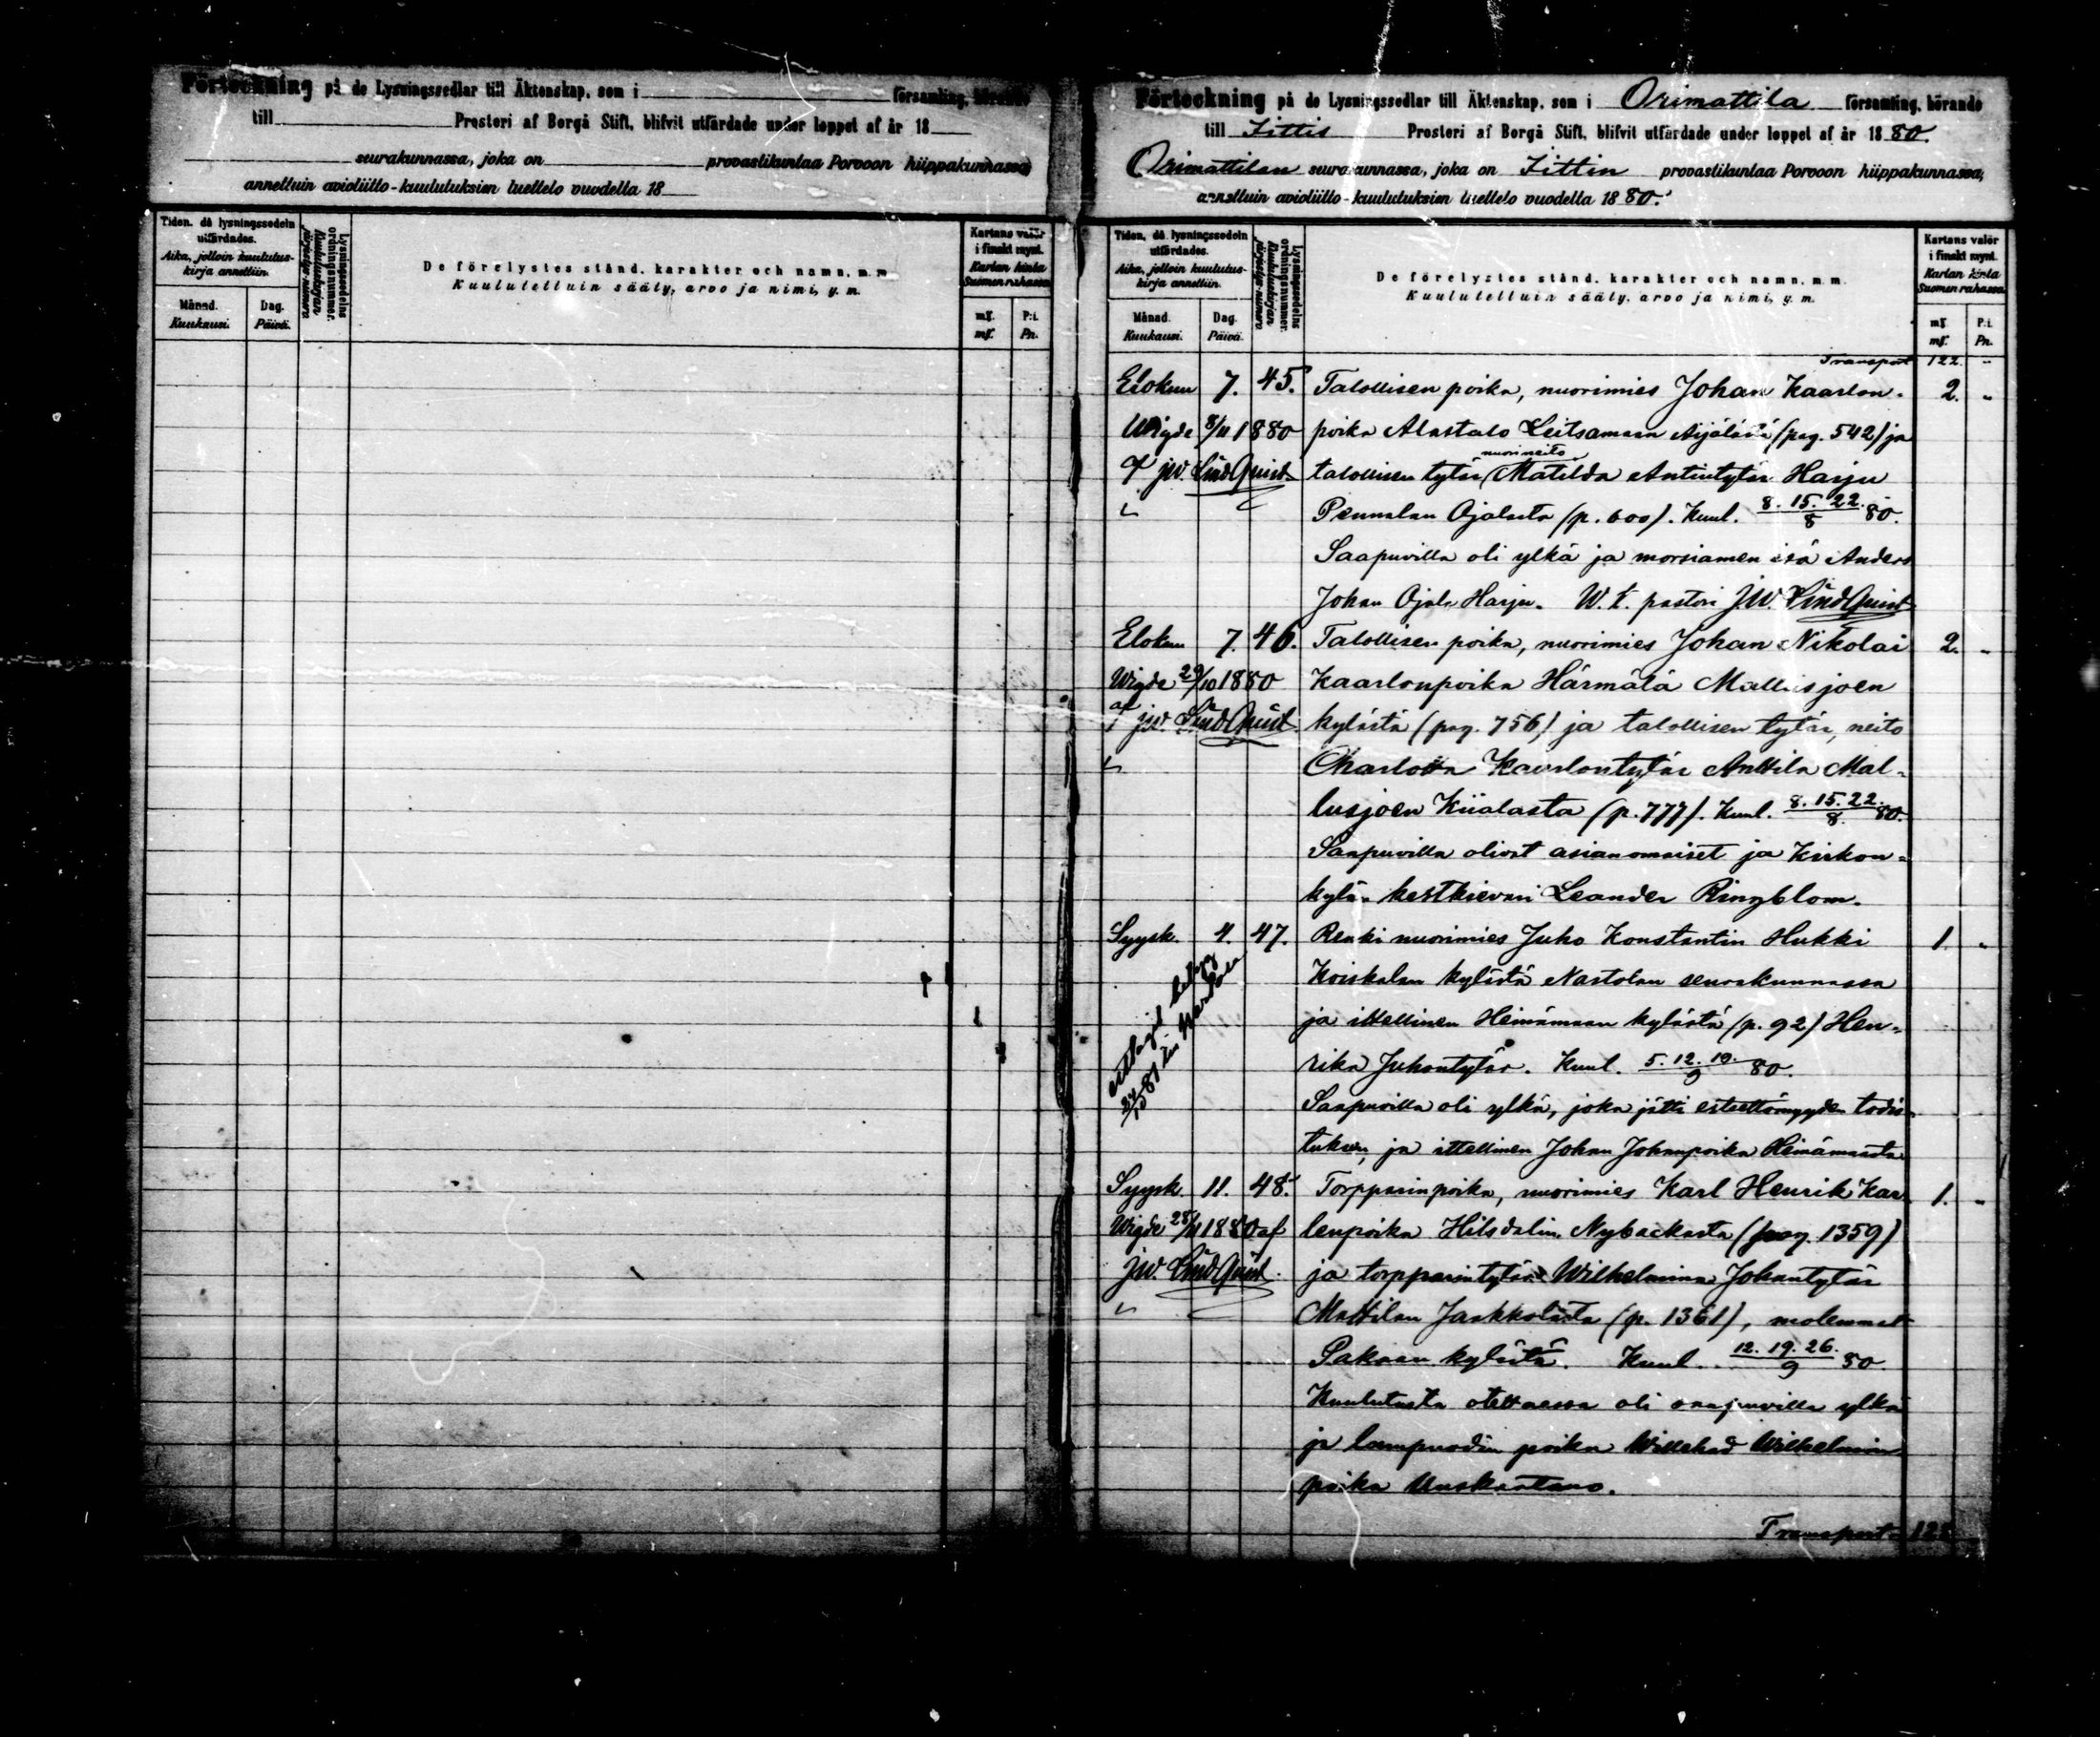 Förteckning på de Lysningssedlar till Äktenskap, som i församling, hörande
till Prosteri af Borgå Stift, blifvit utfärdade under loppet af år 18
seurakunnassa, joka on provastikuntaa Porvoon hiippakunnassa,
annettuin avioliitto-kuulutuksien luettelo vuodella 18
Tiden, då lysningssedeln utfärdades.
Aika, jolloin kuulutus-kirja annettiin.
Månad. Kuukausi.
Dag. Päivä.
Lysningssedelns ordningsnummer.
Kuulutuskirjan järjestys-numero
De förelystes stånd, karakter och namn, m. m.
Kuulutettuin sääty, arvo ja nimi, y. m.
Kartans valör i finskt mynt.
Kartan hinta Suomen rahassa
mf. mf.
P:i. Pn.
Förteckning på de Lysningssedlar till Äktenskap, som i Orimattila församling, hörande
till Iittis Prosteri af Borgå Stift, blifvit utfärdade under loppet af år 1880.
Orimattilan seurakunnassa, joka on Iittin provastikuntaa Porvoon hiippakunnassa,
annettuin avioliitto-kuulutuksien luettelo vuodella 1880.
Tiden, då lysningssedeln utfärdades.
Aika, jolloin kuulutus-kirja annettiin.
Månad. Kuukausi.
Dag. Päivä.
Lysningssedelns ordningsnummer.
Kuulutuskirjan järjestys-numero
De förelystes stånd, karakter och namn, m. m.
Kuulutettuin sääty, arvo ja nimi, y. m.
Kartans valör i finskt mynt.
Kartan hinta Suomen rahassa.
mf. mf.
P:i. Pn.
Transport 122 "
Elokuu 7. 45. Talollisen poika, nuorimies Johan Kaarlon- 2. "
Wigde 8/11 1880 poika Alastalo Leitsamaan Äijälästä (pag. 542) ja
af JW. LindQvist talollisen tytär, nuori neito Matilda Antintytär Harju
Pennalan Ojalasta (p. 600). Kuul. 8. 15. 22./8 80.
Saapuvilla oli ylkä ja morsiamen isä Anders
Johan Ojala Harju. W. t. pastori JW. LindQvist
Elokuu 7. 46. Talollisen poika, nuorimies Johan Nikolai 2. "
Wigde 29/10 1880 Kaarlonpoika Härmälä Mallusjoen
af JW. LindQvist kylästä (pag. 756) ja talollisen tytär, neito
Charlotta Kaarlontytär Anttila Mal-
lusjoen Kiialasta (p. 777). Kuul. 8. 15. 22./8. 80.
Saapuvilla olivat asianomaiset ja Kirkon-
kylän kestkievari Leander Ringblom.
Syysk. 4. 47. Renki nuorimies Juho Konstantin Hukki 1. "
Koiskalan kylästä Nastolan seurakunnassa
ja itellinen Heinämaan kylästä (p. 92) Hen-
rika Juhontytär. Kuul. 5. 12. 19./9 80.
Saapuvilla oli ylkä, joka jätti esteettömyyden todis-
tuksen, ja itellinen Johan Johanpoika Heinämaasta
Syysk. 11. 48. Torpparinpoika, nuorimies Karl Henrik Kar- 1. "
Wigde 28/11 1880 af lenpoika Hilsdalin Nybackasta (pag. 1359)
JW. LindQvist. ja torpparintytär Wilhelmina Johantytär
Mattilan Jaakkolasta (p. 1361), molemmat
Pakaan kylästä. Kuul. 12. 19. 26./9 80.
Kuulutusta otettaessa oli saapuvilla ylkä
ja lampuodin poika Willehad Wilhelmin
poika Uuskartano.
Transport